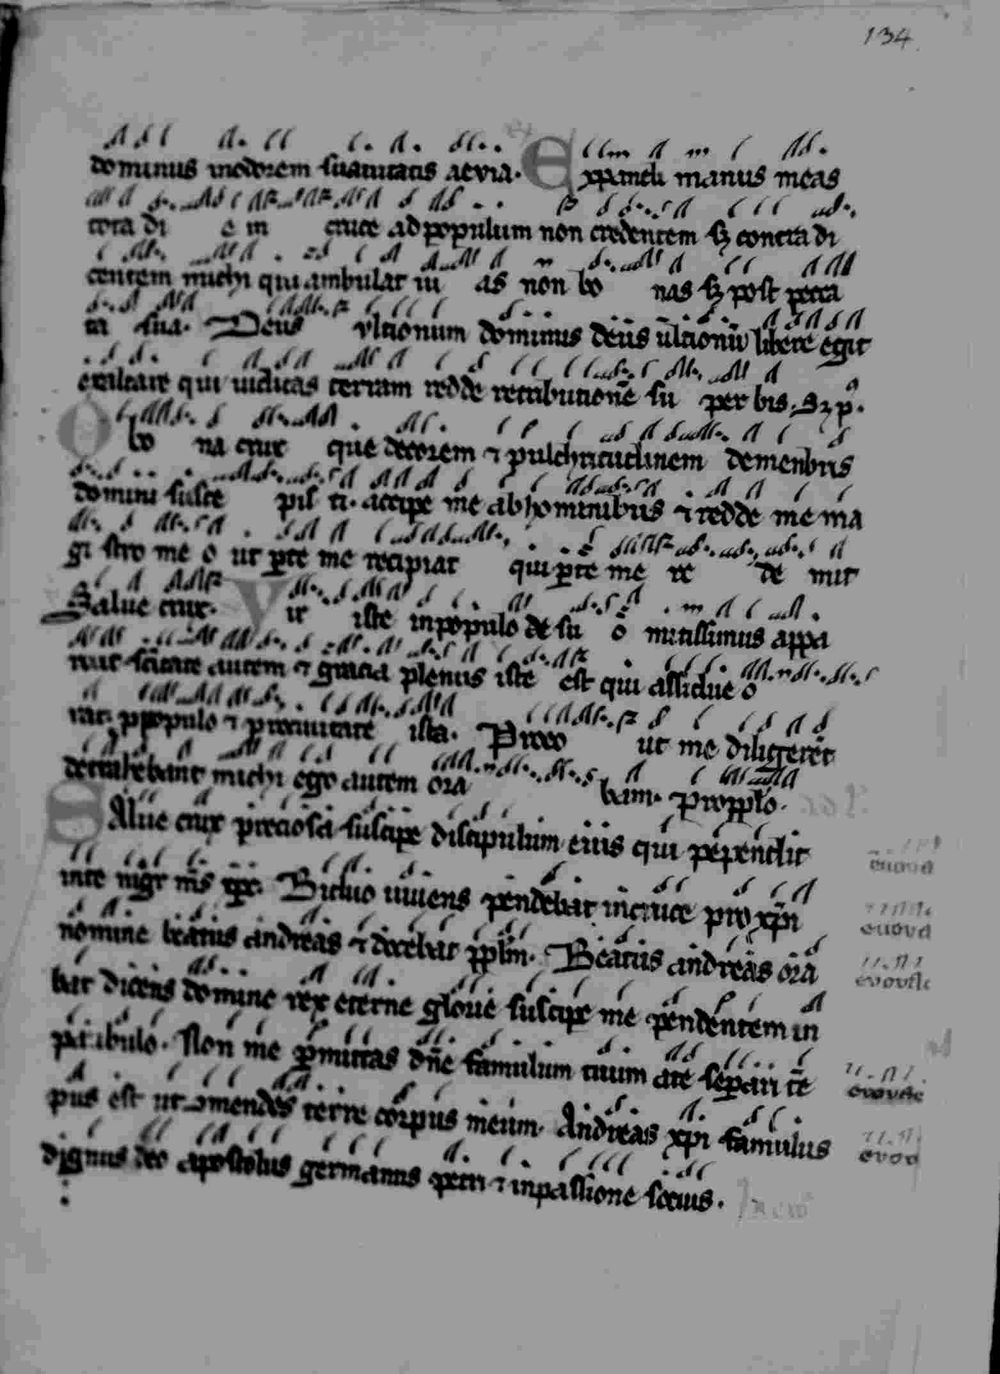 134
dominus inodorem suauitatis aevia. Expandi manus meas
tota di e in cruce ad populum non credentem sz contradi
centem michi qui ambulat in as non bo nas sz post pecca
ta sua. Deus vltionum dominus deus ultionū libere egit
exaltare qui iudicas terram redde retributionē su per bis. Sz p.
O bo na crux que decorem ⁊ pulchritudinem demenbris
domini susce pis ti. accipe me ab hominibus ⁊ redde me ma
gi stro me o ut p te me recipiat qui p te me re de mit
Salue crux. Vir iste in populo de su o mitissimus appa
ruit scītate autem ⁊ gracia plenus iste est qui assidue o
rat p populo ⁊ pro ciuitate ista. Pro eo ut me diligerēt
detrahebant michi ego autem ora bam. Pro pplo.
SAlue crux preciosa suscipe discipulum eius qui pependit
in te mgr ms xpc. Biduo uiuens pendebat in cruce pro xpi
nomine beatus andreas ⁊ docebat pplm. Beatus andreas ora
euoua
bat dicens domine rex eterne glorie suscipe me pendentem in
patibulo. Non me pmittas dn̄e famulum tuum a te separi tē
pus est ut ꝯmendes terre corpus meum. Andreas xpi famulus
dignus deo apostolus germanus petri ⁊ in passione socius.